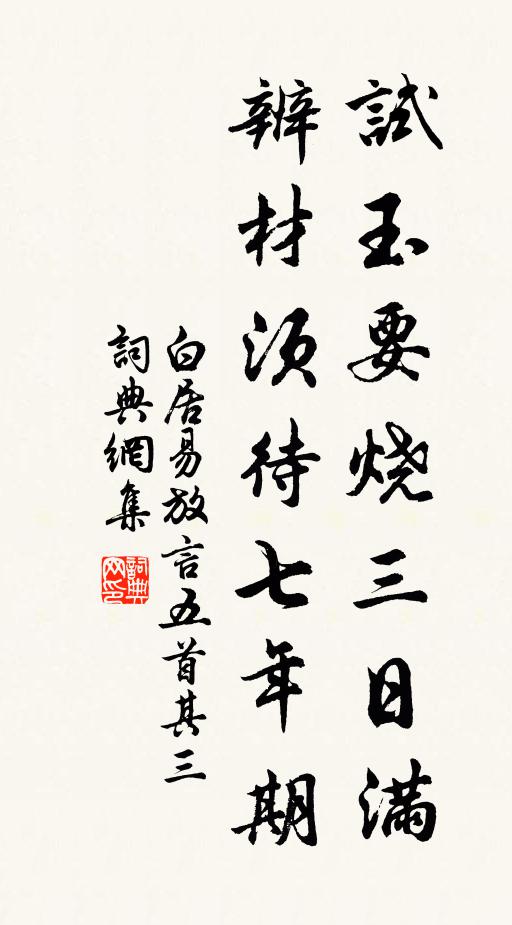 試玉要烧三日滿
辨材須待七年期
白居易放言五首其三
詞典網集
詞典网印